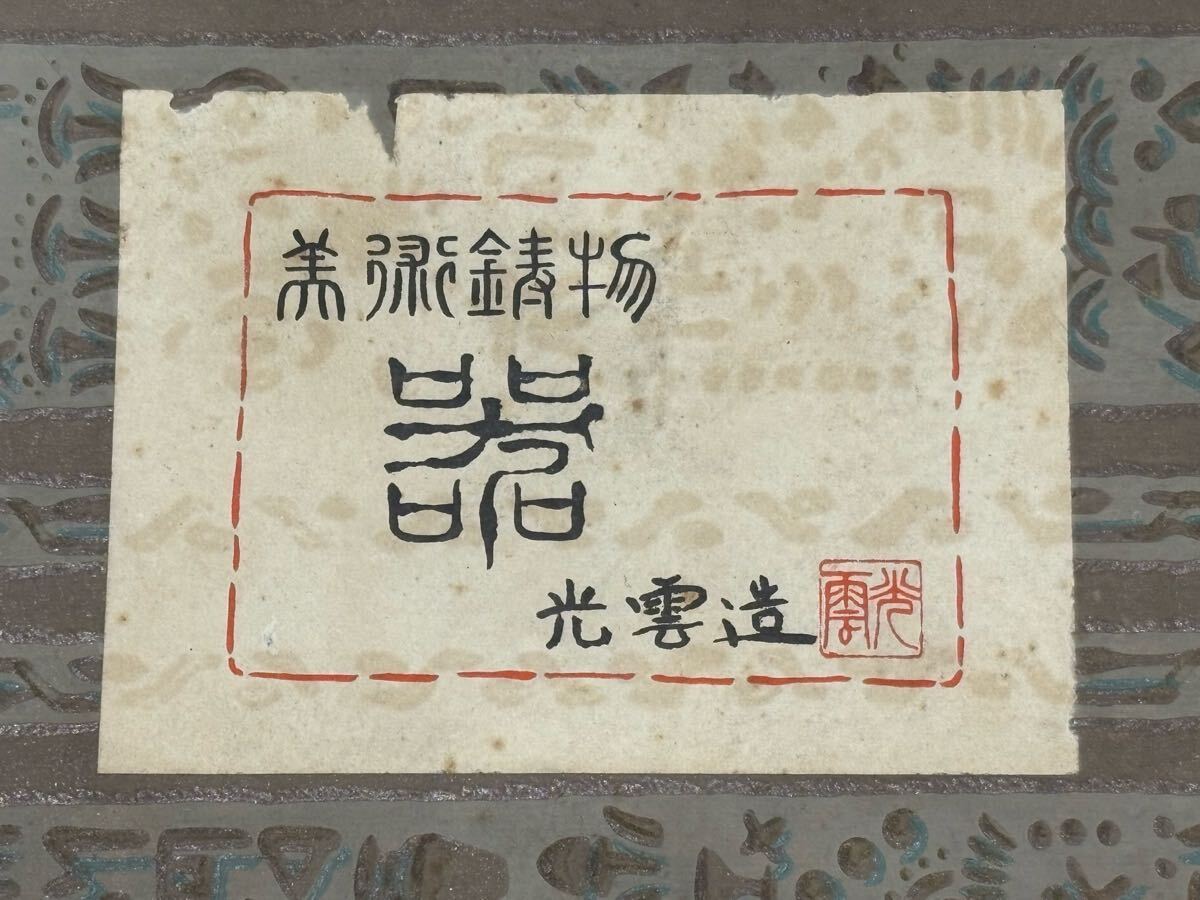 美術鋳物
器
光雲造
光雲